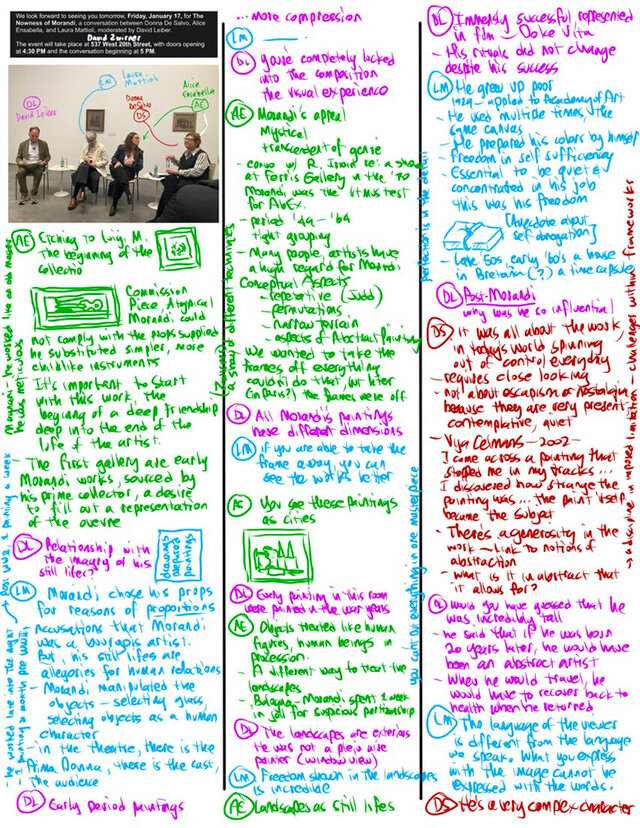 We look forward to seeing you tomorrow, Friday, January 17, for The
Nowness of Morandi, a conversation between Donna De Salvo, Alice
Ensabella, and Laura Mattioli, moderated by David Leiber.
David Zwirner
The event will take place at 537 West 20th Street, with doors opening
at 4:30 PM and the conversation beginning at 5 PM.
DL
David Leiber
LM
Laura
Mattioli
Donna
DeSalvo
DS
Alice
Ensabella
AE
AE Etching to Luigi M.
The beginning of the
collectio
Commission
Piece, Atypical
Morandi could
not comply with the props supplied
he substituted simpler, more
childlike instruments
- It's important to start
with this work, the
beginng of a deep friendship
deep into the end of the
life of the artist.
- The first gallery are early
Morandi works, sourced by
his prime collector, a desire
to fill out a representation
of the ouvre
Magnani - he worked like an old master
he was meticulous
DL Relationship with
the imagry of his
still lifes?
drawings
outpaced
paintings
LM Morandi chose his props
for reasons of proportions
- Accusations that Morandi
was a bourgois artist.
But, his still lifes are
allegories for human relations
- Morandi manipulated the
objects - selecting glass,
selecting objects as a human
character
- in the theatre, there is the
Prima Donna, there is the cast,
the audience
- he worked late into the night
1 painting 2 months pre WWII
Post WWII, 1 painting a week
DL Early Period paintings
... more compression
LM
DL you're completely locked
into the composition
the visual experience
AE Morandi's appeal
Mystical
transcendent of genre
- convo w/ R. Irwin re: a show
at Ferris Gallery in the '70
Morandi was the litmus test
for AbEx.
- period '49 - '64
tight grouping
- Many people, artists have
a high regard for Morandi
Conceptual Aspects
- repetative (Judd)
- permutations
- narrow terrain
- aspects of Abstract Painting
- We wanted to take the
frames off everything
couldn't do that, but later
(in Paris?) the frames were off
a show of different techniques
DL All Morandi's paintings
have different dimensions
LM if you are able to take the
frame away, you can
see the works better
AE You see these paintings
as cities
DL Early painting in this room
were painted in the war years
AE Objects treated like human
figures, human beings in
procession.
- A different way to treat the
landscapes
- Bologna - Morandi spent 1 week
in jail for suspicious partisanship
DL The landscapes are exteriors
He was not a plein aire
painter (window view)
LM Freedom shown in the landscapes
is incredible
AE Landscapes as still lifes
perfection is in the detail
you can do everything in one masterpiece
DL Immensly successful represented
in film - Dolce Vita
- His rituals did not change
despite his success
LM He grew up poor
1929 - applied to Academy of Art
- He used multiple times, the
same canvas
- He prepared his colors by himself
- freedom in self sufficiency
- Essential to be quiet &
concentrated in his job
this was his freedom
[Anecdote about
self abnegation]
- Late 50s, early 60's a house
in Bretania (?) a time capsule
DL Post-Morandi
why was he so influential
DS it was all about the work,
in today's world spinning
out of control everyday
- requires close looking
- not about escapism or nostalgia
because they are very present,
contemplative, quiet
- Vija Celmins - 2002 -
I came across a painting that
stopped me in my tracks...
I discovered how strange the
painting was... the paint itself
became the subject
- There's a generosity in the
work - link to notions of
abstraction
- what is it in abstract that
it allows for?
→ a discipline, in imposed limitation - challenges within frameworks
DL would you have guessed that he
was incredibly tall
- he said that if he was born
20 years later, he would have
been an abstract artist
- When he would travel, he
would have to recover back to
health when he returned
LM The language of the viewer
is different from the language
we speak. What you express
with the image cannot be
expressed with the words.
DS He's a very complex character